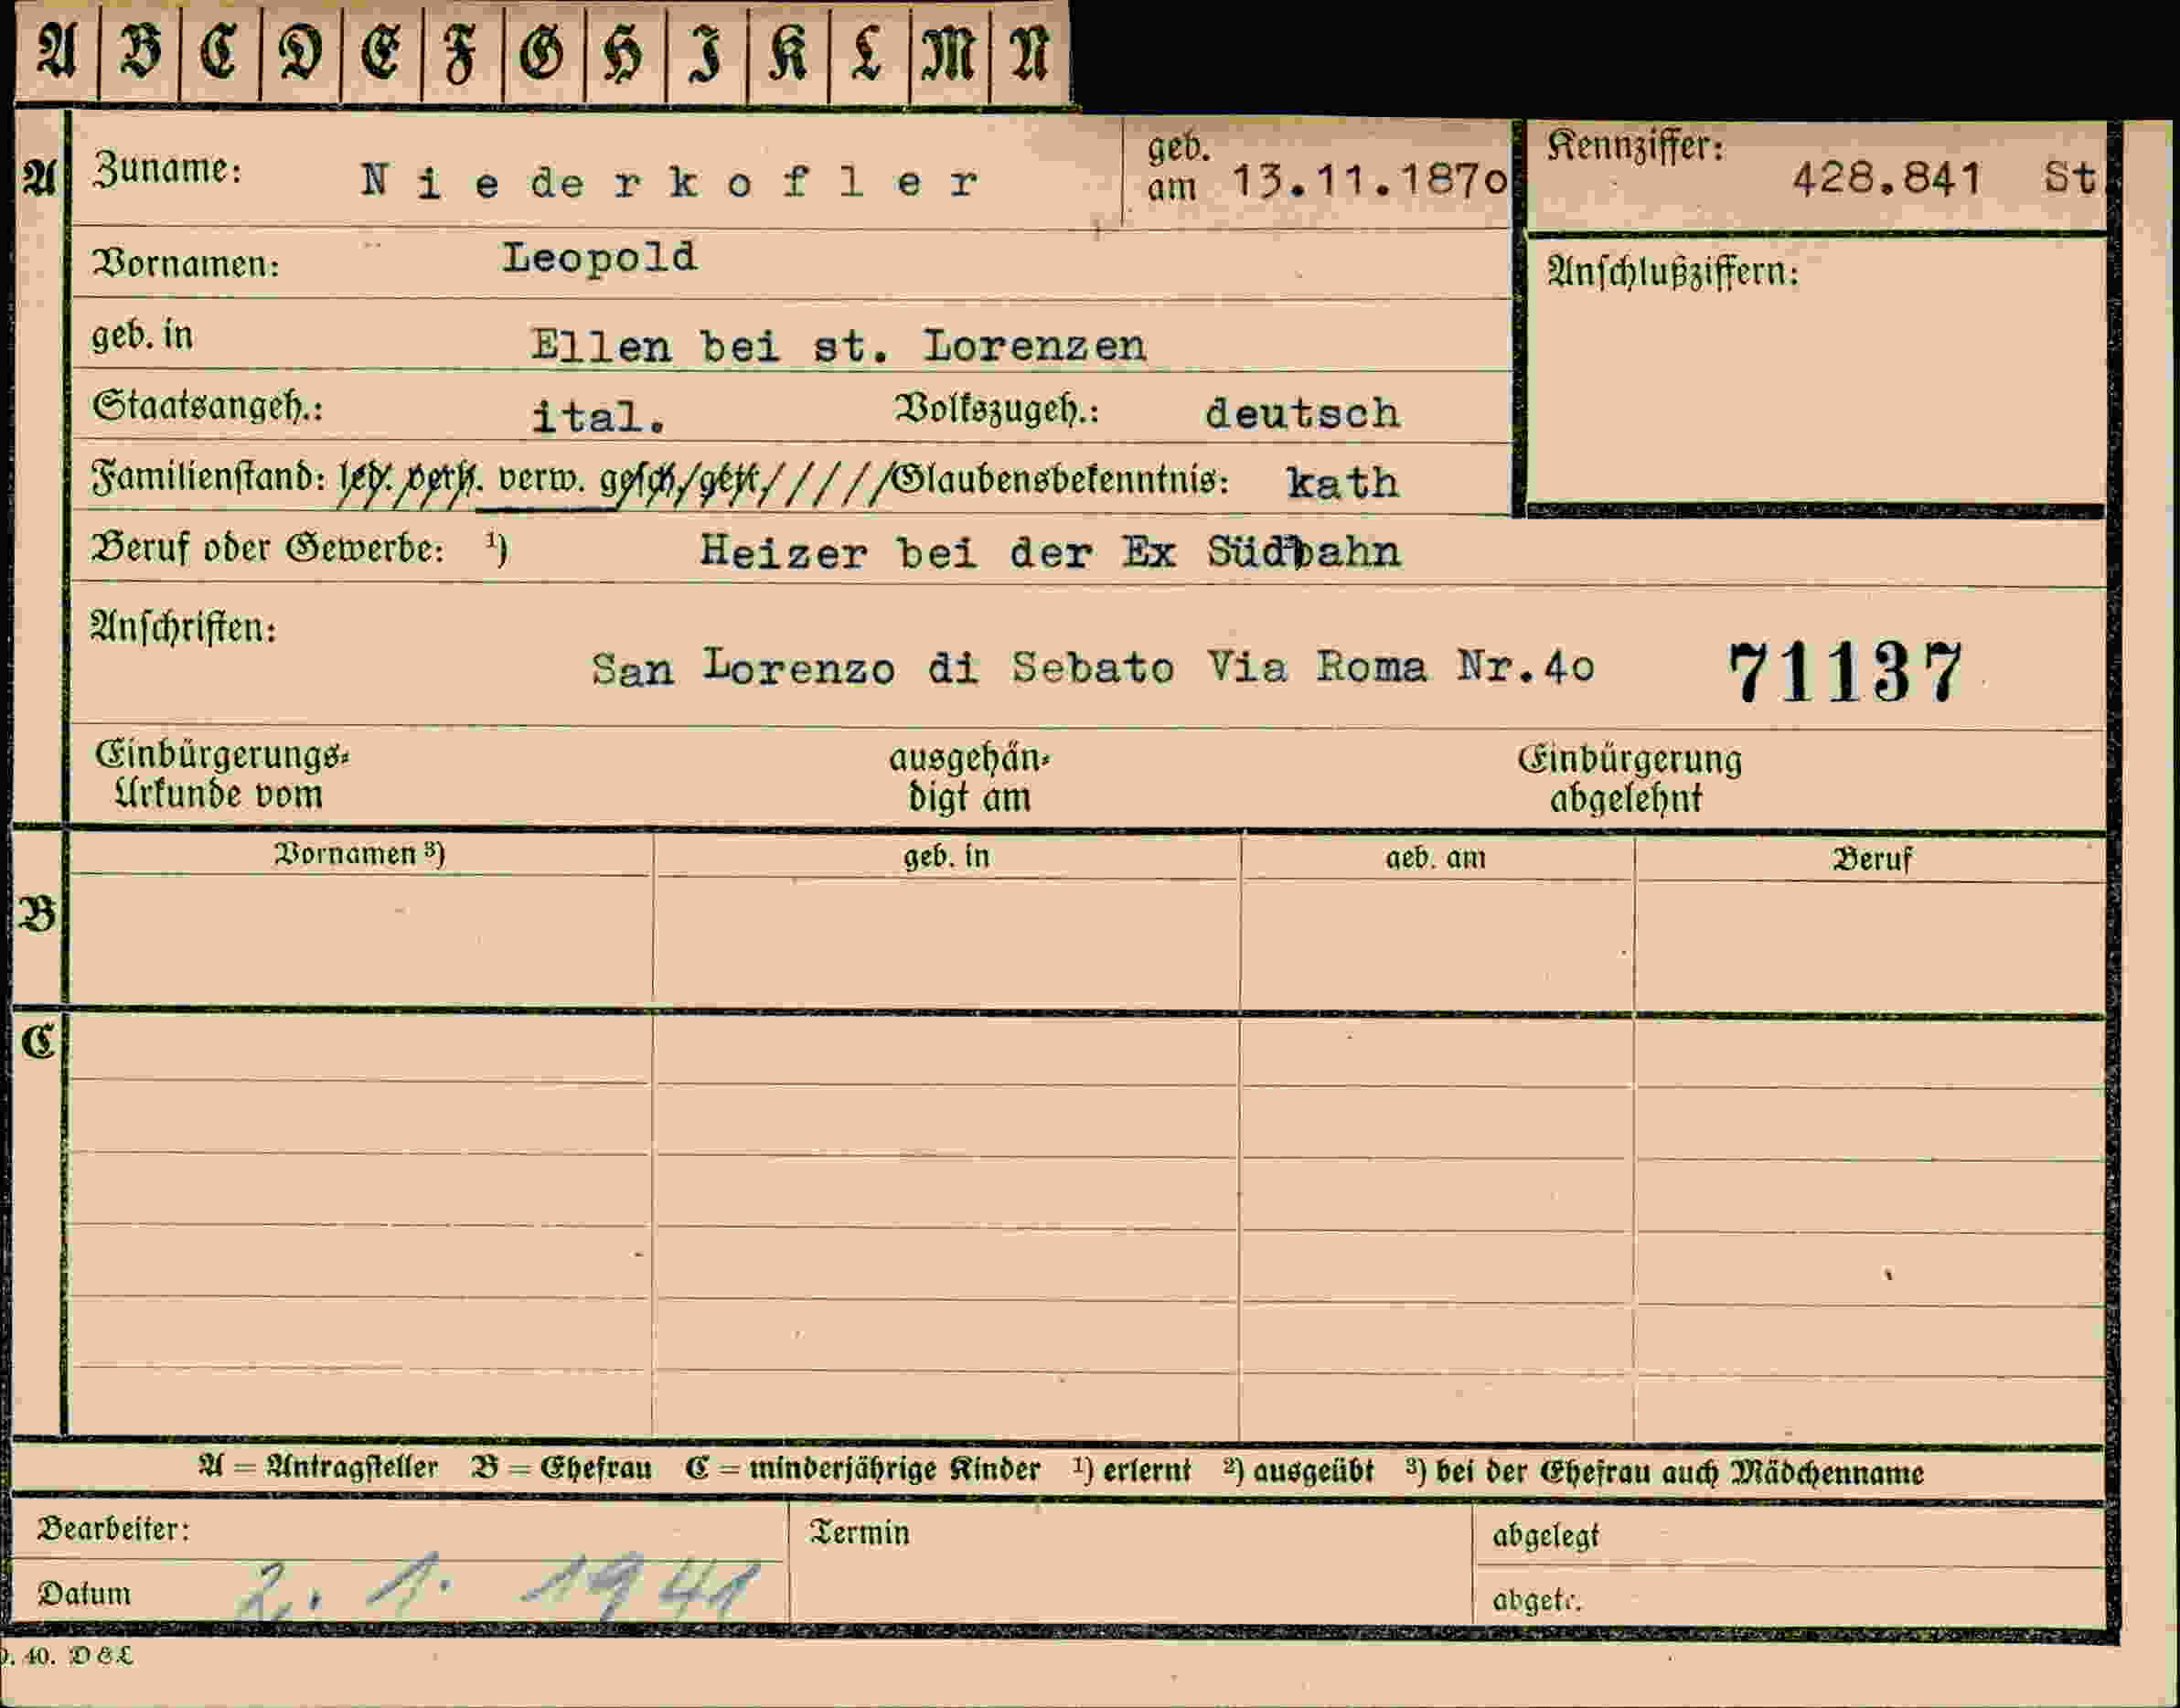 A B C D E F G H I K L M N
A Zuname: Niederkofler geb. am 13.11.187o Kennziffer: 428.841 St
Vornamen: Leopold Anschlußziffern:
geb. in Ellen bei st. Lorenzen
Staatsangeh.: ital. Volkszugeh.: deutsch
Familienstand: led. verh. verw. gesch./getr./////Glaubensbekenntnis: kath
Beruf oder Gewerbe: ¹) Heizer bei der Ex Südbahn
Anschriften:
San Lorenzo di Sebato Via Roma Nr.4o 71137
Einbürgerungs- ausgehän- Einbürgerung
Urkunde vom digt am abgelehnt
Vornamen ³) geb. in geb. am Beruf
B
C
A = Antragsteller B = Ehefrau C = minderjährige Kinder ¹) erlernt ²) ausgeübt ³) bei der Ehefrau auch Mädchenname
Bearbeiter: Termin abgelegt
Datum 2. 1. 1941 abgetr.
40. D & L